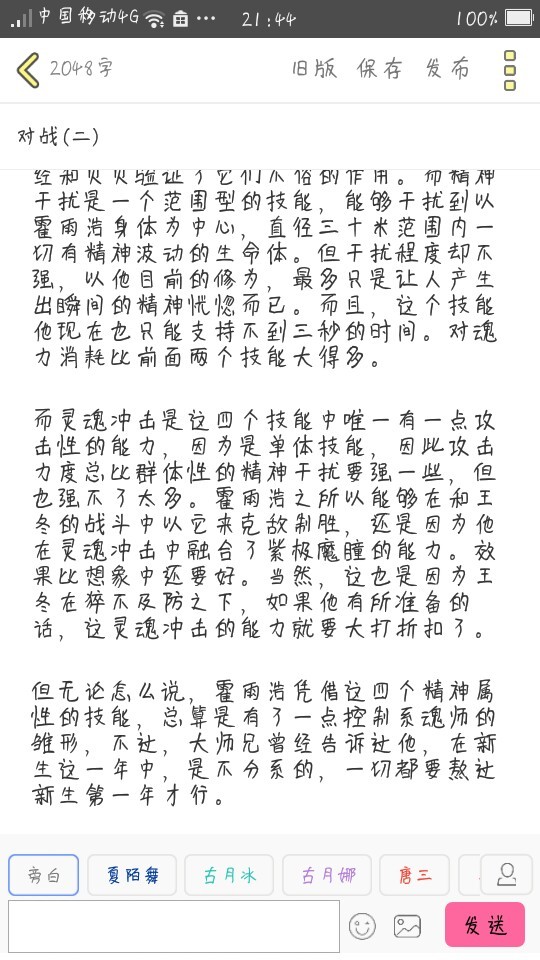 中国移动4G 21:44 100%
2048字 旧版 保存 发布
对战(二)
经和贝贝验证了它们不俗的作用。而精神
干扰是一个范围型的技能，能够干扰到以
霍雨浩身体为中心，直径三十米范围内一
切有精神波动的生命体。但干扰程度却不
强，以他目前的修为，最多只是让人产生
出瞬间的精神恍惚而已。而且，这个技能
他现在也只能支持不到三秒的时间。对魂
力消耗比前面两个技能大得多。
而灵魂冲击是这四个技能中唯一有一点攻
击性的能力，因为是单体技能，因此攻击
力度总比群体性的精神干扰要强一些，但
也强不了太多。霍雨浩之所以能够在和王
冬的战斗中以它来克敌制胜，还是因为他
在灵魂冲击中融合了紫极魔瞳的能力。效
果比想象中还要好。当然，这也是因为王
冬在猝不及防之下，如果他有所准备的
话，这灵魂冲击的能力就要大打折扣了。
但无论怎么说，霍雨浩凭借这四个精神属
性的技能，总算是有了一点控制系魂师的
雏形，不过，大师兄曾经告诉过他，在新
生这一年中，是不分系的，一切都要熬过
新生第一年才行。
旁白 夏陌舞 古月冰 古月娜 唐三
发送